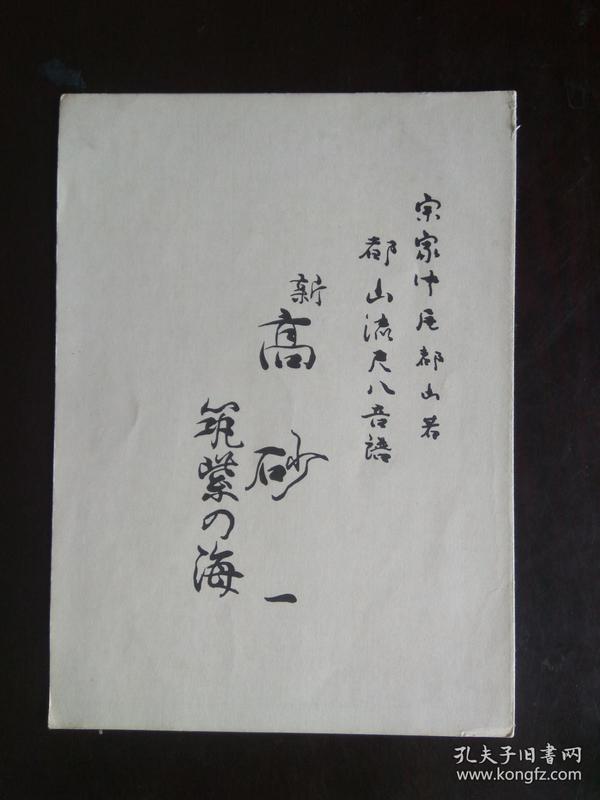 宗家中尾都山著
都山流尺八音譜
新
高砂
一
筑紫の海
孔夫子旧書网
www.kongfz.com